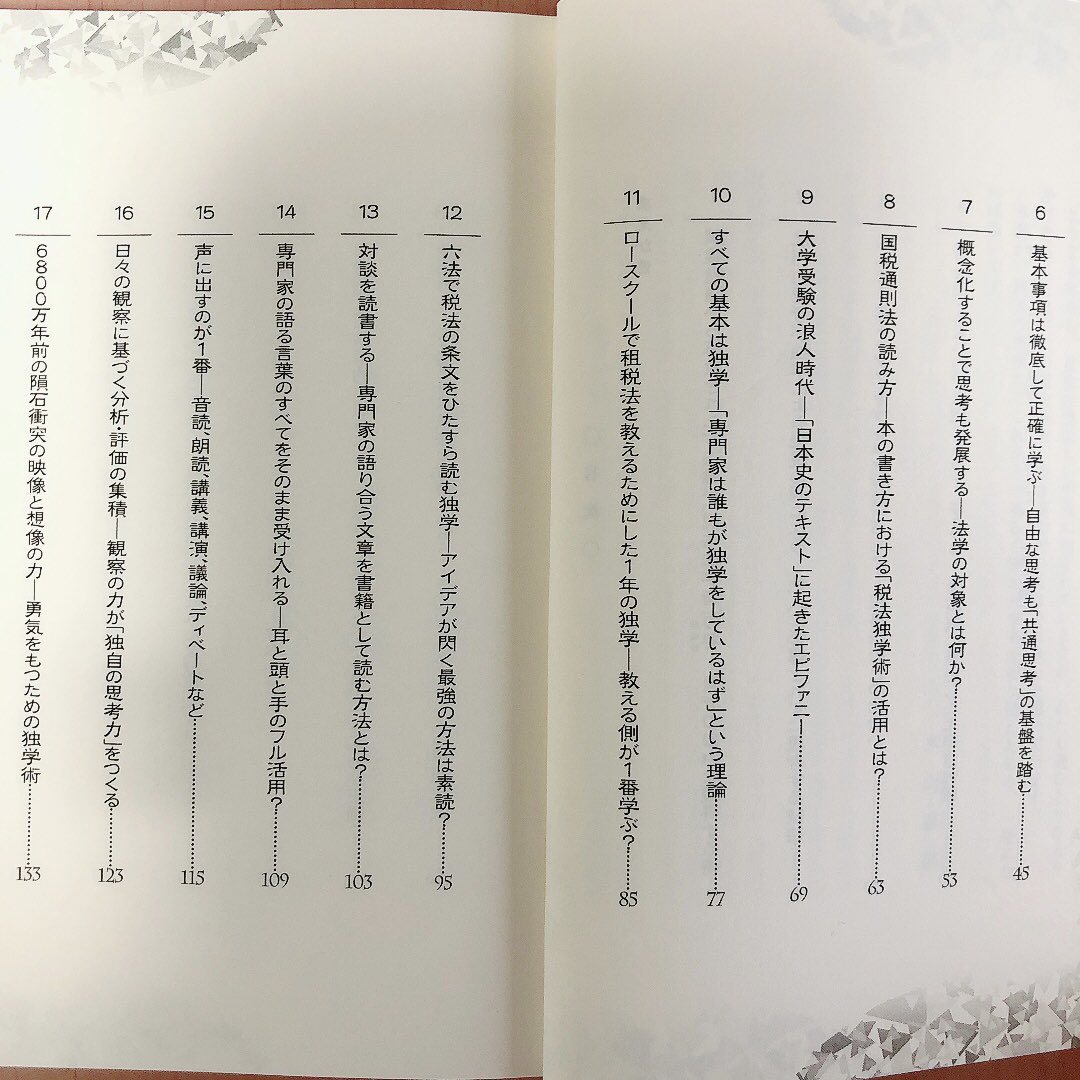 6 基本事項は徹底して正確に学ぶ―自由な思考も「共通思考」の基盤を踏む……45
7 概念化することで思考も発展する―法学の対象とは何か?……53
8 国税通則法の読み方―本の書き方における「税法独学術」の活用とは?……63
9 大学受験の浪人時代―「日本史のテキスト」に起きたエピファニー……69
10 すべての基本は独学―「専門家は誰もが独学をしているはず」という理論……77
11 ロースクールで租税法を教えるためにした1年の独学―教える側が1番学ぶ?……85
12 六法で税法の条文をひたすら読む独学―アイデアが閃く最強の方法は素読?……95
13 対談を読書する―専門家の語り合う文章を書籍として読む方法とは?……103
14 専門家の語る言葉のすべてをそのまま受け入れる―耳と頭と手のフル活用?……109
15 声に出すのが1番―音読、朗読、講義、講演、議論、ディベートなど……115
16 日々の観察に基づく分析・評価の集積―観察の力が「独自の思考力」をつくる……123
17 6800万年前の隕石衝突の映像と想像の力―勇気をもつための独学術……133